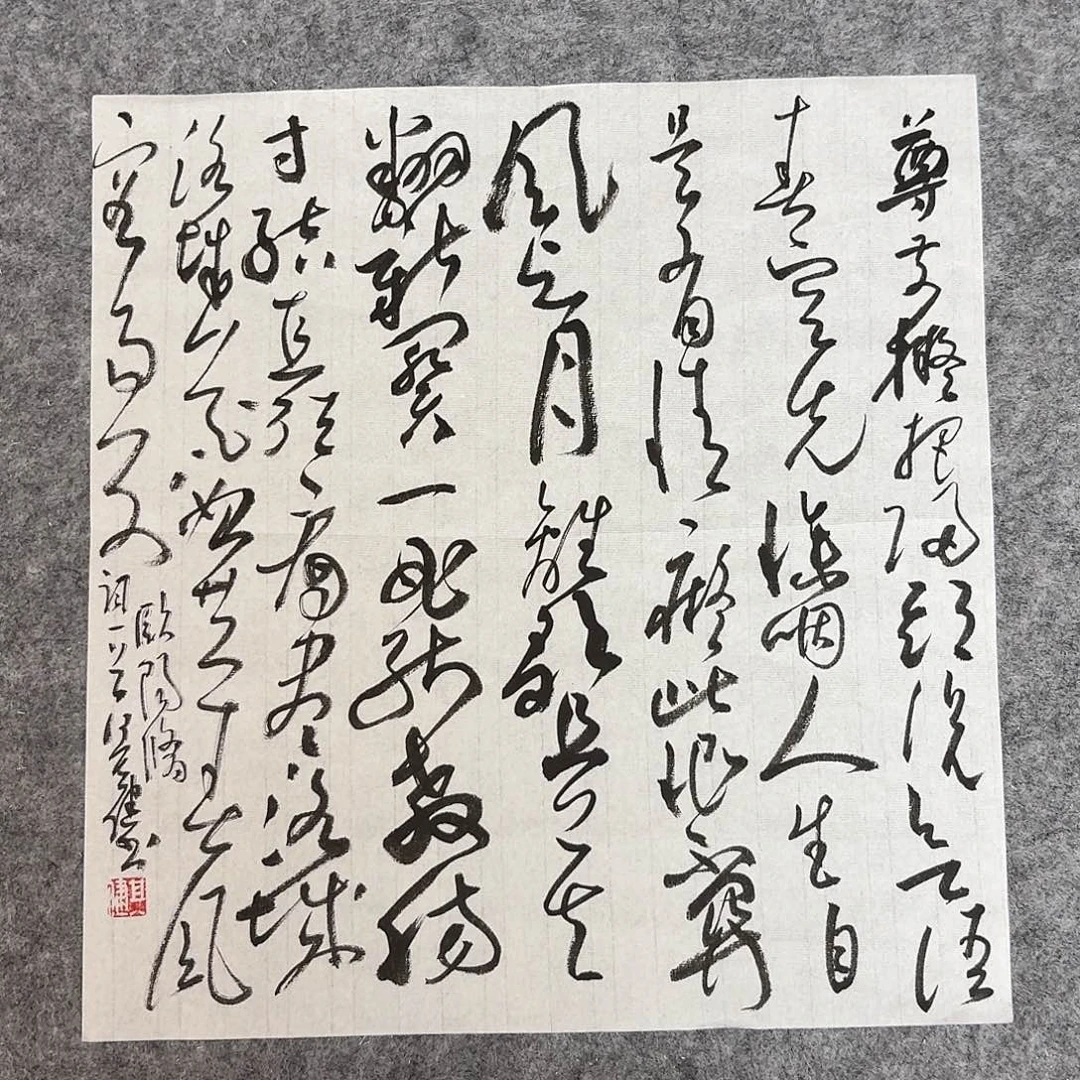 尊前擬把歸期說欲語
春容先慘咽人生自
是有情癡此恨不關
風與月離歌且莫
翻新闋一曲能教腸
寸結直須看盡洛城
洛城花始共春風
容易別
歐陽脩
詞一首吳健書